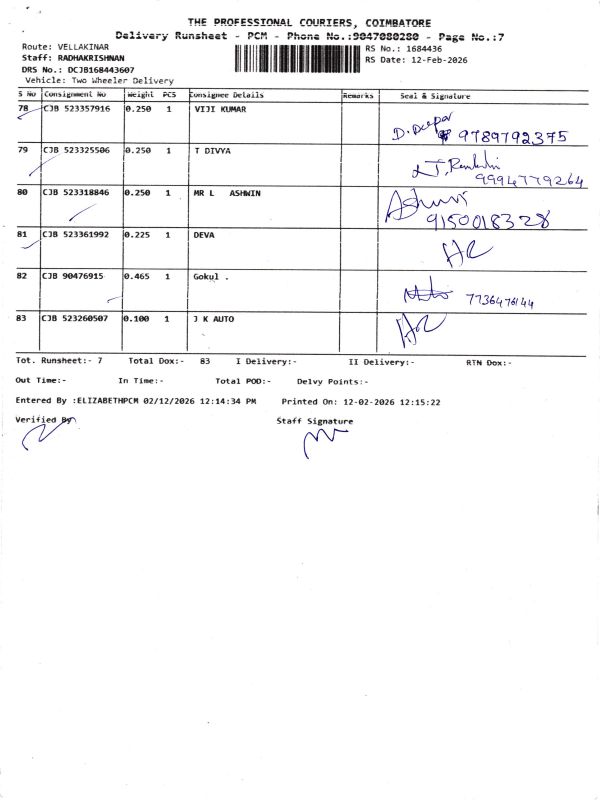 THE PROFESSIONAL COURIERS, COIMBATORE
Delivery Runsheet - PCM - Phone No.:9047080280 - Page No.:7
Route: VELLAKINAR
RS No.: 1684436
Staff: RADHAKRISHNAN
RS Date: 12-Feb-2026
DRS No.: DCJB168443607
Vehicle: Two Wheeler Delivery
S No Consignment No Weight PCS Consignee Details Remarks Seal & Signature
78 CJB 523357916 0.250 1 VIJI KUMAR
D. Deepa 9789792375
79 CJB 523325506 0.250 1 T DIVYA
9994779264
80 CJB 523318846 0.250 1 MR L ASHWIN
Ashwin
9150018328
81 CJB 523361992 0.225 1 DEVA
82 CJB 90476915 0.465 1 Gokul .
7736476144
83 CJB 523260507 0.100 1 J K AUTO
Tot. Runsheet:- 7 Total Dox:- 83 I Delivery:- II Delivery:- RTN Dox:-
Out Time:- In Time:- Total POD:- Delvy Points:-
Entered By :ELIZABETHPCM 02/12/2026 12:14:34 PM Printed On: 12-02-2026 12:15:22
Verified By Staff Signature